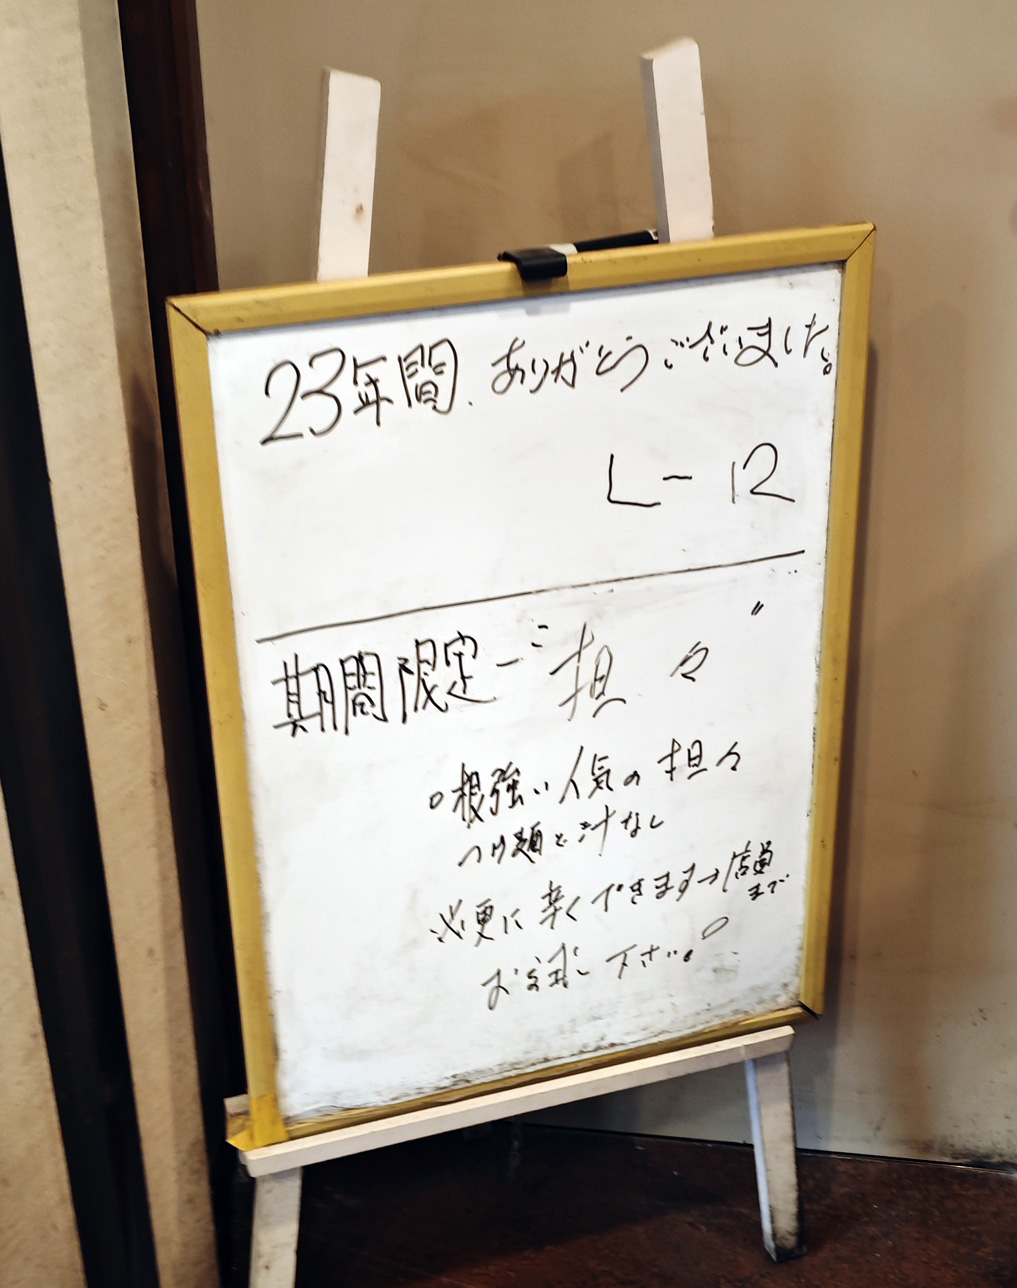 23年間、ありがとうございました。
L-12
期間限定ー 担々
○根強い人気の担々
つけ麺と汁なし
※更に辛くできます→店員まで
お試し下さい。